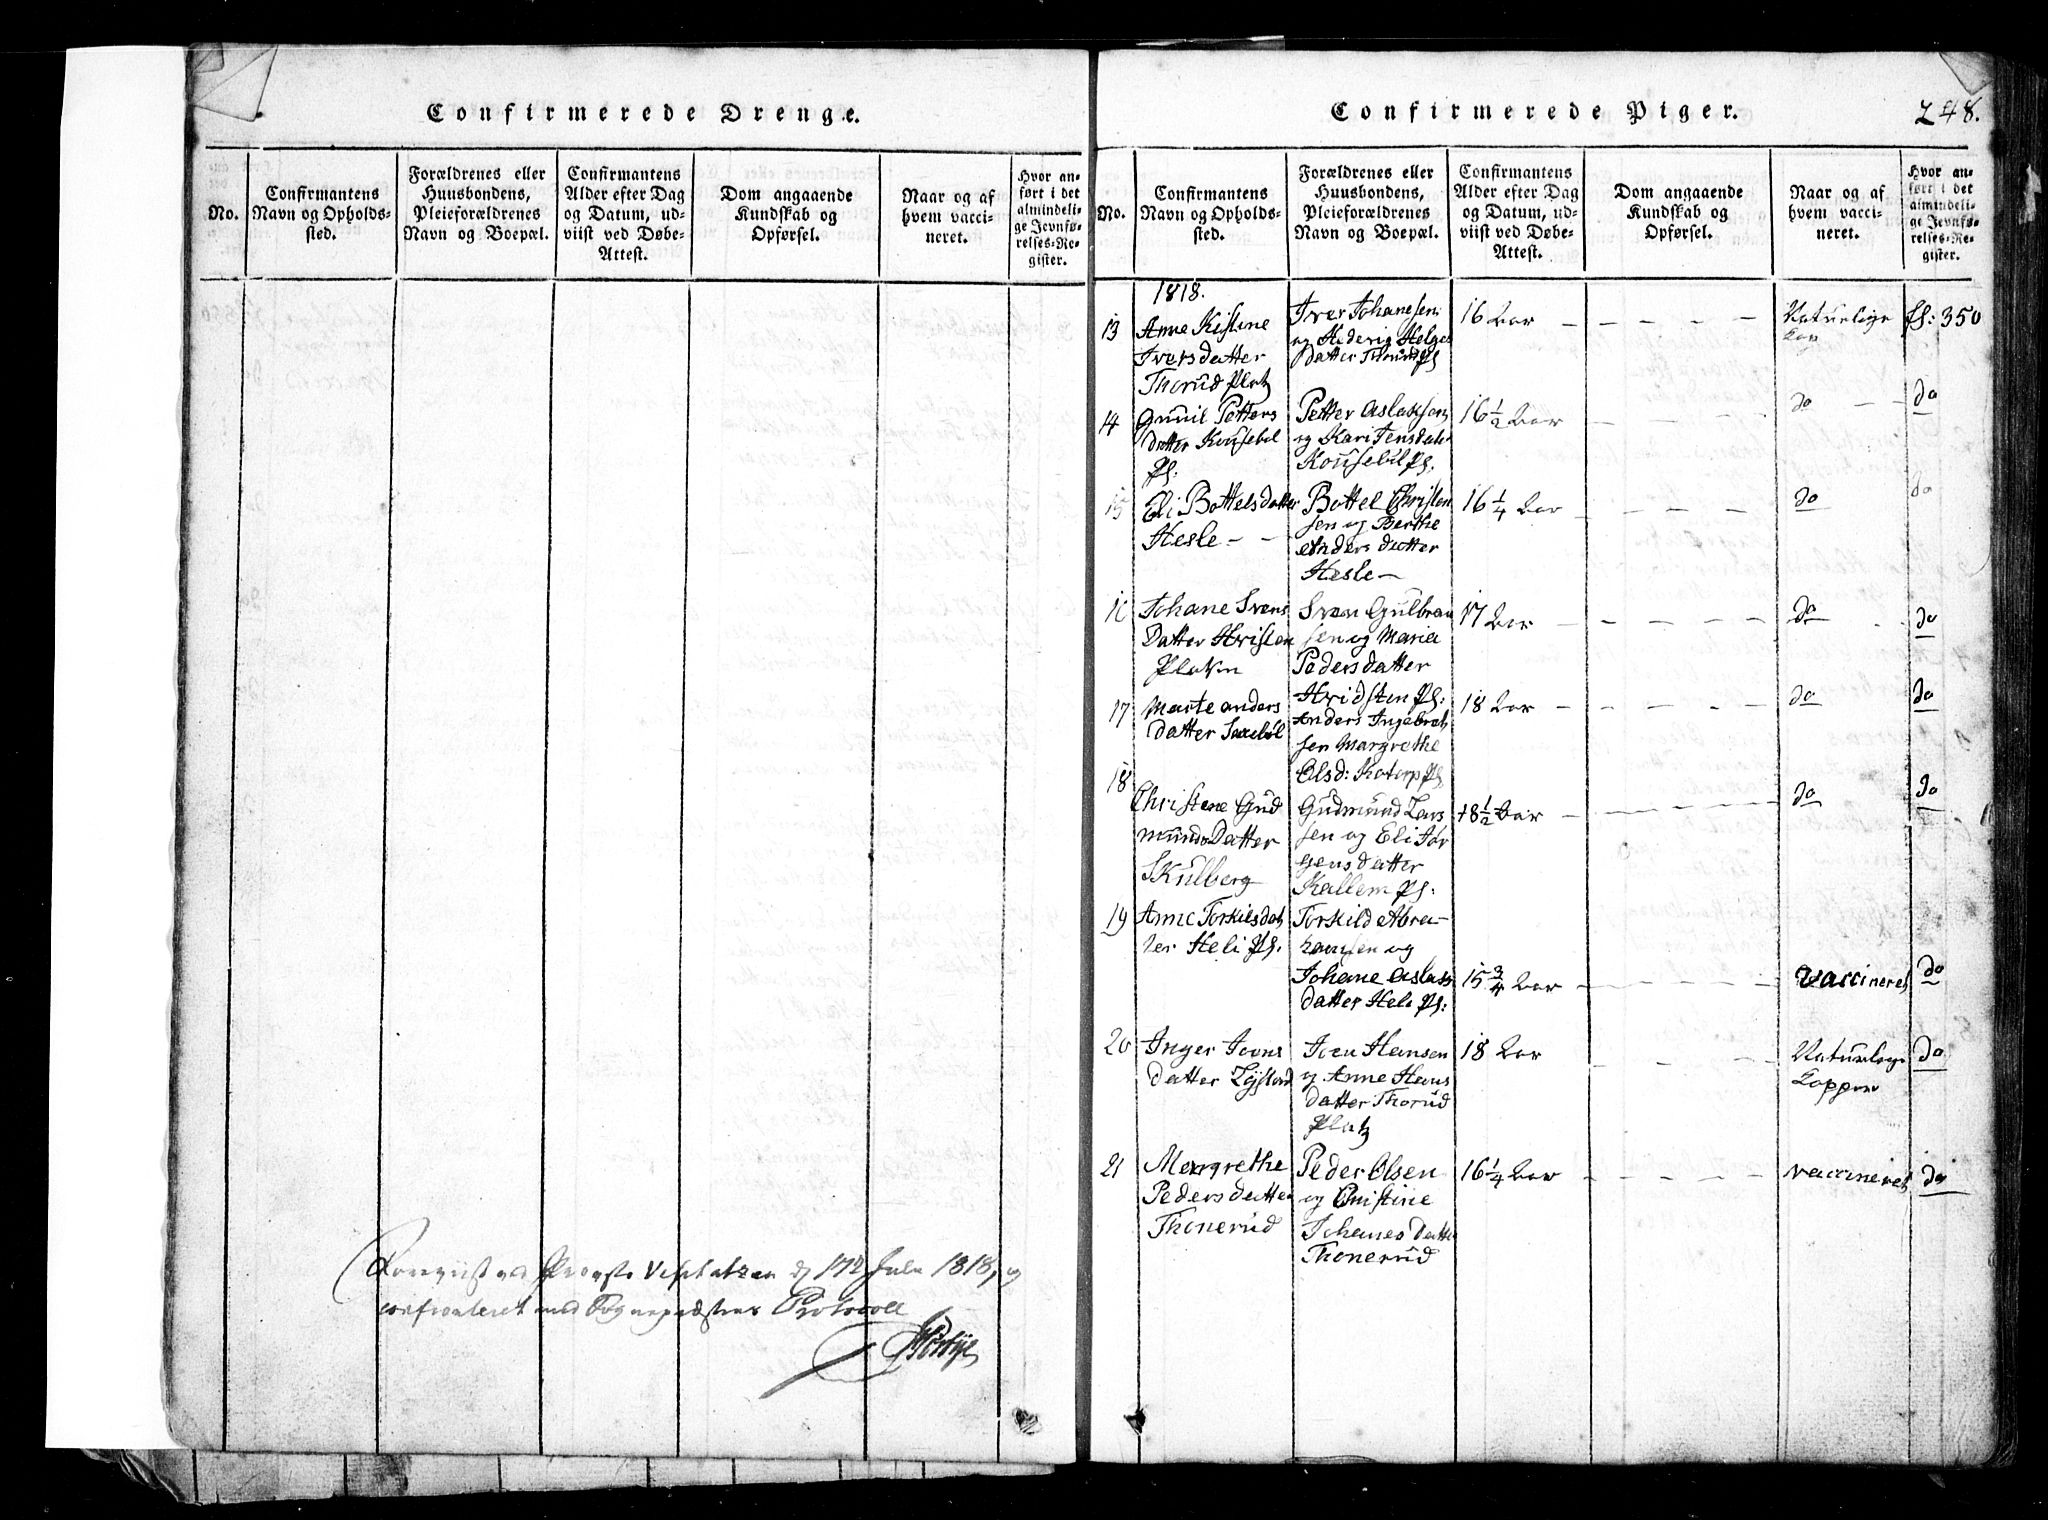 Confirmerede Drenge.
No.
Confirmantens
Navn og Opholds-
sted.
Forældrenes eller
Huusbondens,
Pleieforældrenes
Navn og Boepæl.
Confirmantens
Alder efter Dag
og Datum, ud-
viist ved Døbe-
Attest.
Dom angaaende
Kundskab og
Opførsel.
Naar og af
hvem vacci-
neret.
Hvor an-
ført i det
almindeli-
ge Jevnfø-
relses-Re-
gister.
d 17 Julii 1818, og
confronteret med Sognepræstens Protocoll
Confirmerede Piger.
248.
No.
Confirmantens
Navn og Opholds-
sted.
Forældrenes eller
Huusbondens,
Pleieforældrenes
Navn og Boepæl.
Confirmantens
Alder efter Dag
og Datum, ud-
viist ved Døbe-
Attest.
Dom angaaende
Kundskab og
Opførsel.
Naar og af
hvem vacci-
neret.
Hvor an-
ført i det
almindeli-
ge Jevnfø-
relses-Re-
gister.
1818.
13
Anne Kistine
Iversdatter
Thorud Platz
Iver Johanesen
og Hederig Helges
datter Thorud Pl
16 Aar – – – – –
Naturlige
Kop
fl: 350
14
Gunil Petters
datter Kousebøl
Pl:
Petter Aslaksen
og Kari Jensdatt
Kousebøl Pl.
16 1/2 Aar – – – –
do
do
15
Eli Bottelsdatter
Hesle – –
Bottel Christen
sen og Berthe
Anders datter
Hesle –
16 1/4 Aar – – – – –
do
do
16
Johane Svens
Datter Hvisten
Platzen
Sven Gulbran
sen og Maria
Peders datter
Hvidsten Pl:
17 Aar – – – – –
do
do
17
Marte anders
datter Saxebøl
Anders Ingebret
sen Margrethe
Olsd: Katorp Pl
18 Aar – – – – –
do
do
18
Christene Gud
munds Datter
Skulberg
Gudmund Lars
sen og Eli Jør
gens datter
Kallem Pl:
18 1/2 Aar – – – – –
do
do
19
Anne Torkilsdat
ter Heli Pl.
Torkild Abra-
hamsen og
Johane Aslaks
datter Heli Pl:
15 3/4 Aar – – – – –
vaccineret
do
20
Inger Joens
datter
Joen Hansen
og Anne Hans
datter Thorud
Platz
18 Aar – – – –
Naturlige
Kopper
do
21
Margrethe
Pedersdatter
Thonerud
Peder Olsen
og Christine
Johanes datter
Thonerud
16 1/4 Aar – – – – –
vaccineret
do